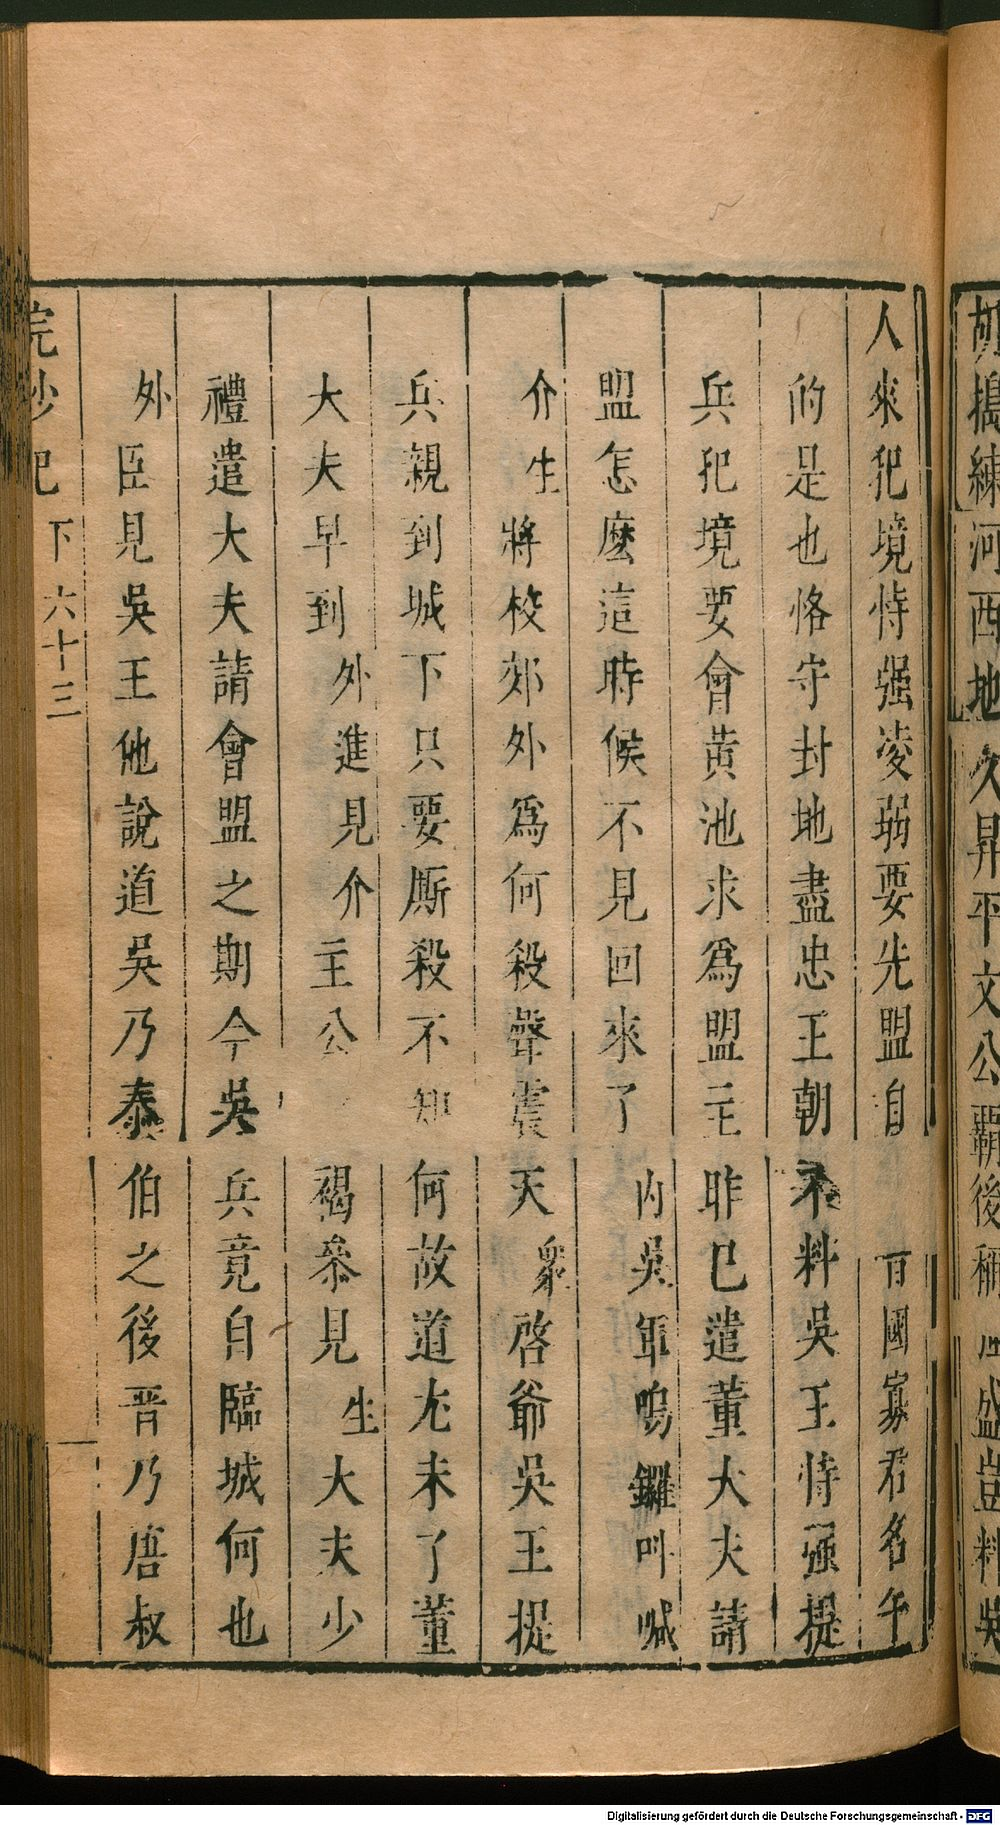 胡搗練河西地久昇平文公霸後稱 盛豈料吳
人來犯境恃强凌弱要先盟自 百國寡君名午
的是也恪守封地盡忠王朝不料吳王恃强提
兵犯境要會黃池求爲盟主昨已遣董大夫請
盟怎麼這時候不見回來了內吳軍鳴鑼叫喊
介生將校郊外爲何殺聲震天衆啓爺吳王提
兵親到城下只要厮殺不知何故道尤未了董
大夫早到外進見介主公 褐叅見生大夫少
禮遣大夫請會盟之期今吳兵竟自臨城何也
外臣見吳王他說道吳乃泰伯之後晋乃唐叔
浣紗記 下 六十三
Digitalisierung gefördert durch die Deutsche Forschungsgemeinschaft - DFG